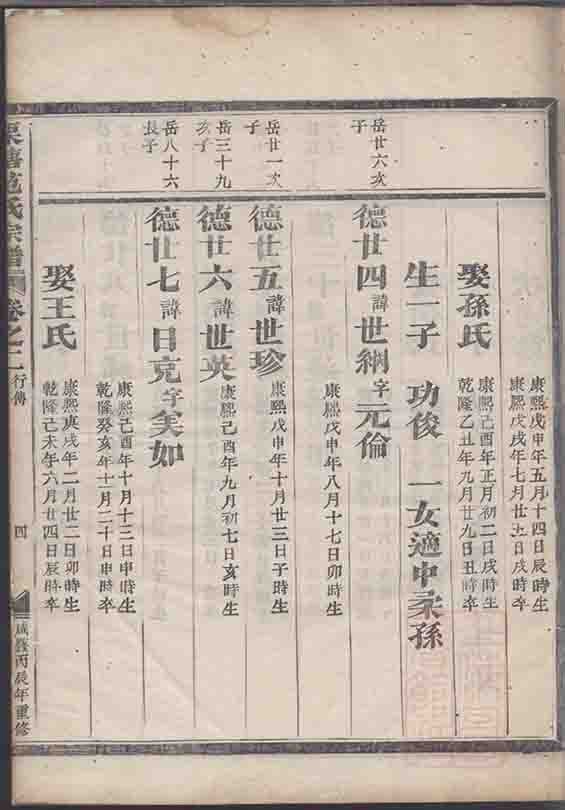 康熙戊申年五月十四日辰時生
康熙戊戌年七月廿五日戌時卒
娶孫氏
康熙己酉年正月初二日戌時生
乾隆乙丑年九月廿九日丑時卒
生一子 功俊 一女適中柔孫
岳廿六次子
德廿四諱世綱字元倫
康熙戊申年八月十七日卯時生
岳廿一次子
德廿五諱世珍
康熙戊申年十月廿三日子時生
岳三十九亥子
德廿六諱世英
康熙己酉年九月初七日亥時生
岳八十六長子
德廿七諱日克字美如
康熙己酉年十月十三日申時生
乾隆癸亥年十二月二十日申時卒
娶王氏
康熙庚戌年二月廿二日卯時生
乾隆己未年六月廿四日辰時卒
范氏宗譜
卷之二
行傳
四
咸豐丙辰年重修